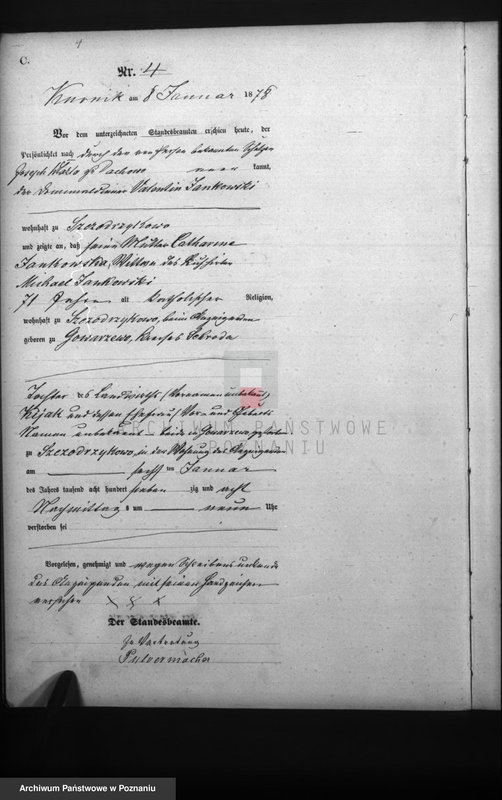 C.
4
Nr. 4
Kurnik am 8 Januar 1878
Vor dem unterzeichneten Standesbeamten erschien heute, der
Persönlichkeit nach durch den von Person bekannten
Joseph zu Dachowo kannt,
der Valentin Jankowski
wohnhaft zu Szczodrzykowo
und zeigte an, daß seine Mutter Catharina
Jankowska, Wittwe des
Michael Jankowski
71 Jahre alt katholischer Religion,
wohnhaft zu Szczodrzykowo, beim Anzeigenden
geboren zu Gowarzewo, Kreises Schroda
Tochter des Landwirth (Vornamen unbekannt)
Kijak und dessen Ehefrau, Vor- und Geburts
Namen unbekannt – beide in Gowarzewo
zu Szczodrzykowo, in der Wohnung des Anzeigenden
am sechsten Januar
des Jahres tausend acht hundert sieben zig und acht
Nachmittags um neun Uhr
verstorben sei
Vorgelesen, genehmigt und wegen Schreibensunkunde
des Anzeigenden mit seinem Handzeichen
versehen x x x
Der Standesbeamte.
In Vertretung
Pulvermacher
ARCHIWUM PAŃSTWOWE
POZNANIU
Archiwum Państwowe w Poznaniu